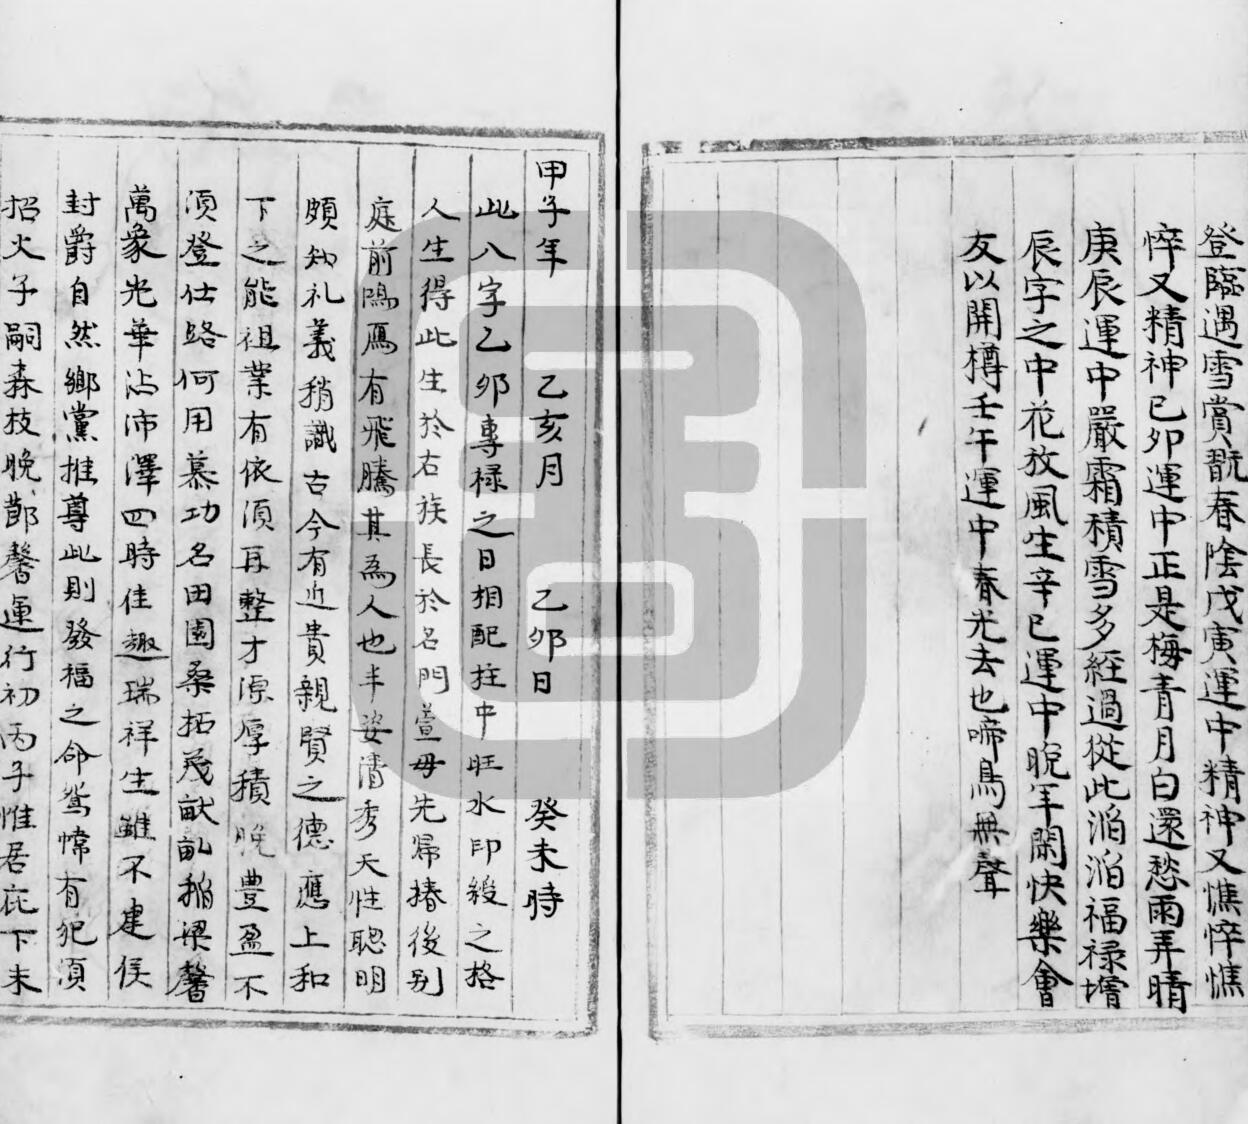 登臨遇雪賞翫春陰戊寅運中精神又憔悴憔
悴又精神已卯運中正是梅青月白還愁雨弄晴
庚辰運中嚴霜積雪多經過從此滔滔福禄増
辰字之中花放風生辛巳運中晩年閑快樂會
友以開樽壬午運中春光去也啼鳥無聲
甲子年　乙亥月　乙卯日　癸未時
此八字乙卯專禄之日相配拄中旺水印綬之格
人生得此生於右族長於名門萱母先歸椿後别
庭前鴻鴈有飛騰其為人也丰姿清秀天性聰明
頗知礼義稍識古今有近貴親賢之德應上和
下之能祖業有依須再整才源厚積晚豊盈不
須登仕路何用慕功名田園桑柘茂畎畝稻梁馨
萬象光華沾沛澤四時佳趣瑞祥生雖不建侯
封爵自然鄉黨推尊此則發福之命鴛幃有犯須
招火子嗣森枝晚節馨運行初丙子惟居庇下未